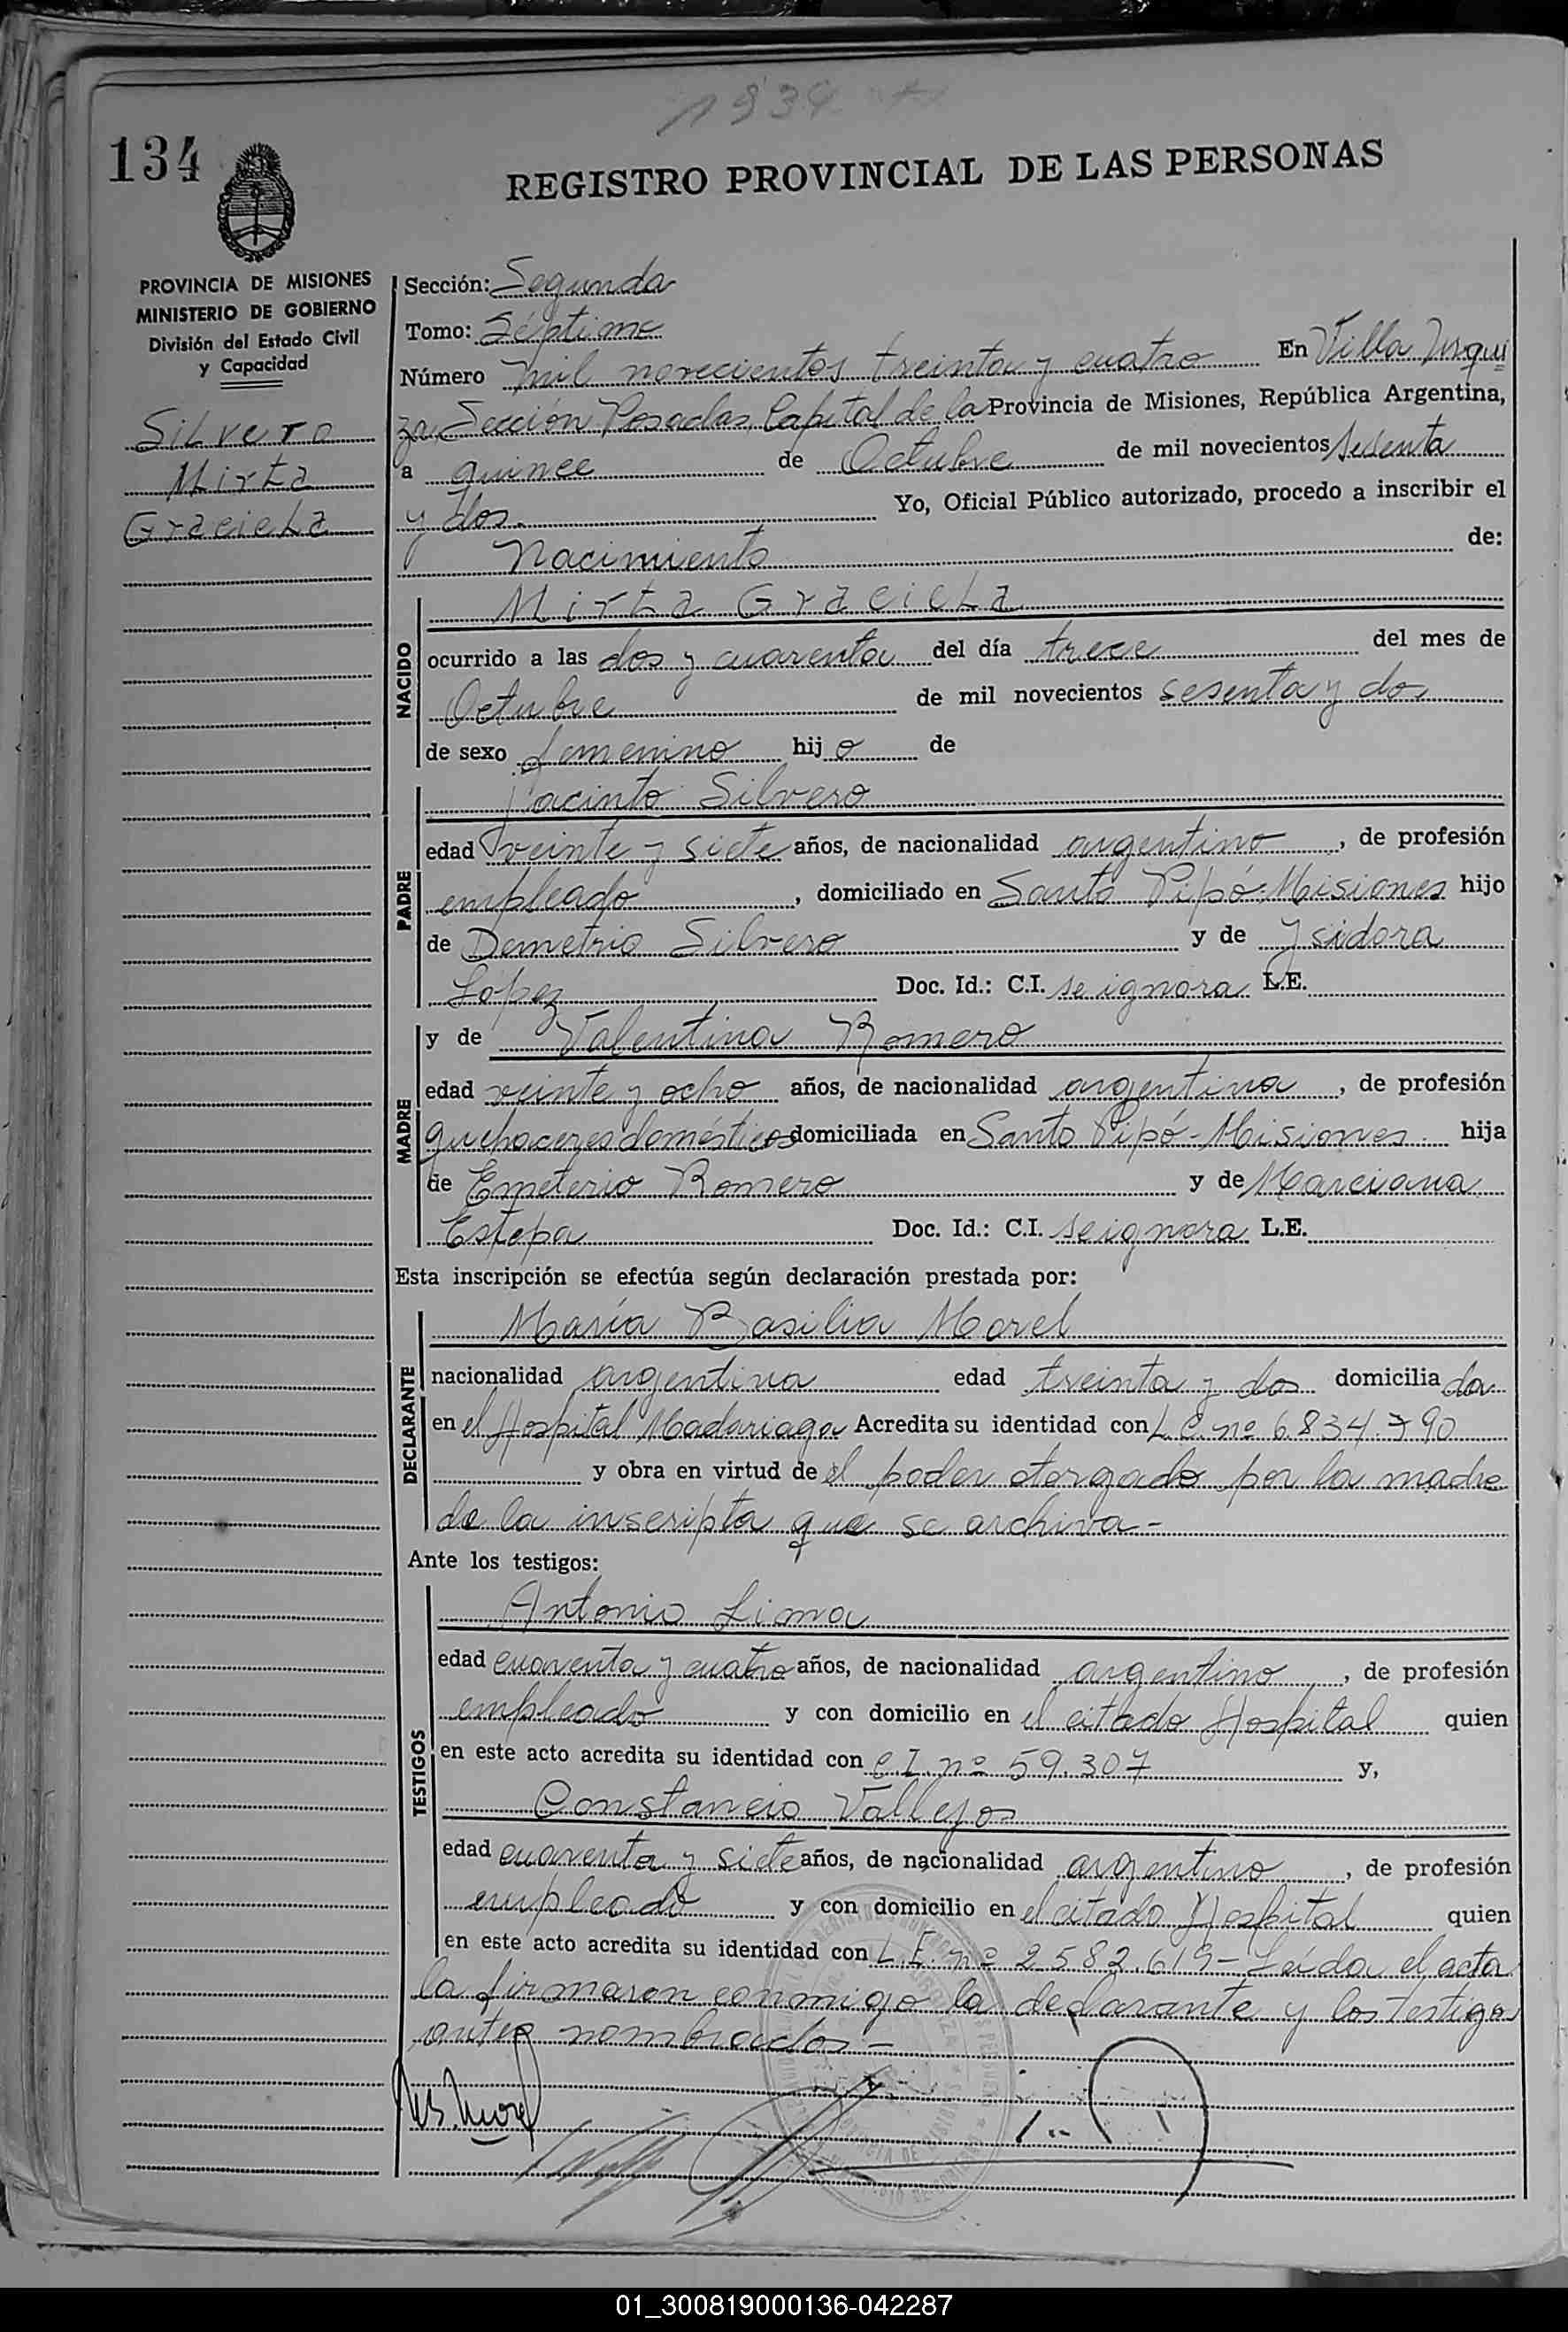 1934
134
REGISTRO PROVINCIAL DE LAS PERSONAS
PROVINCIA DE MISIONES
MINISTERIO DE GOBIERNO
División del Estado Civil
y Capacidad
Silvero
Mirta
Graciela
Sección: Segunda
Tomo: Séptimo
Número mil novecientos treinta y cuatro En Villa Urqui
za, Sección Posadas, Capital de la Provincia de Misiones, República Argentina,
a quince de Octubre de mil novecientos sesenta
y dos. Yo, Oficial Público autorizado, procedo a inscribir el
Nacimiento de:
NACIDO
Mirta Graciela
ocurrido a las dos y cuarenta del día trece del mes de
Octubre de mil novecientos sesenta y dos
de sexo femenino hijo de
PADRE
Jacinto Silvero
edad veinte y siete años, de nacionalidad argentino, de profesión
empleado, domiciliado en Santo Pipó-Misiones hijo
de Demetrio Silvero y de Ysidora
López Doc. Id.: C.I. se ignora L.E.
MADRE
y de Valentina Romero
edad veinte y ocho años, de nacionalidad argentina, de profesión
quehaceres domésticos domiciliada en Santo Pipó-Misiones. hija
de Emeterio Romero y de Marciana
Estepa Doc. Id.: C.I. se ignora L.E.
Esta inscripción se efectúa según declaración prestada por:
DECLARANTE
María Basilia Morel
nacionalidad argentina edad treinta y dos domiciliada
en el Hospital Madariaga Acredita su identidad con L.C. nº 6.834.790
y obra en virtud de el poder otorgado por la madre
de la inscripta que se archiva-
Ante los testigos:
TESTIGOS
Antonio Lima
edad cuarenta y cuatro años, de nacionalidad argentino, de profesión
empleado y con domicilio en el citado Hospital quien
en este acto acredita su identidad con C.I. nº 59.307 y,
Constancio Vallejos
edad cuarenta y siete años, de nacionalidad argentino, de profesión
empleado y con domicilio en el citado Hospital quien
en este acto acredita su identidad con L.E. nº 2.582.619- Leída el acta
la firmaron conmigo la declarante y los testigos
antes nombrados-
M.B. Morel
01_300819000136-042287